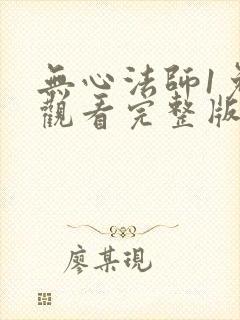 無心法師1
觀看完整版
廖某現